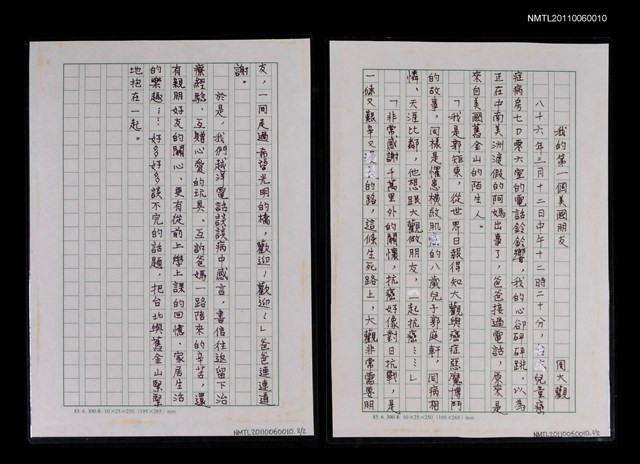 NMTL20110060010
我的第一個美國朋友
周大觀
八十六年三月十二日中午十二時二十分，台大兒童癌
症病房七D零六室的電話鈴鈴響，我的心卻砰砰跳，以為
正在中南美洲渡假的阿媽出事了，爸爸接過電話，原來是
來自美國舊金山的陌生人。
「我是郭矩東，從世界日報得知大觀與癌症惡魔博鬥
的故事，同樣是罹患橫紋肌癌的八歲兒子郭庭軒，同病相
憐、天涯比鄰，他想跟大觀做朋友，一起抗癌……」
「非常感謝千萬里外的關懷，抗癌好像對日抗戰，是
一條又艱辛又漫長的路，這條生死路上，大觀非常需要朋
85.6.300本 10×25=250 (195×265) mm
NMTL20110060010, 1/2
友，一同走過希望光明的橋，歡迎！歡迎！」爸爸連連道
謝。
於是，我們越洋電話談談病中感言，書信往返留下治
療經驗、互贈心愛的玩具、互訴爸媽一路陪來的辛苦，還
有親朋好友的關心、更有從前上學上課的回憶、家居生活
的樂趣……好多好多談不完的話題，把台北與舊金山緊緊
地抱在一起。
85.6.300本 10×25=250 (195×265) mm
NMTL20110060010, 2/2